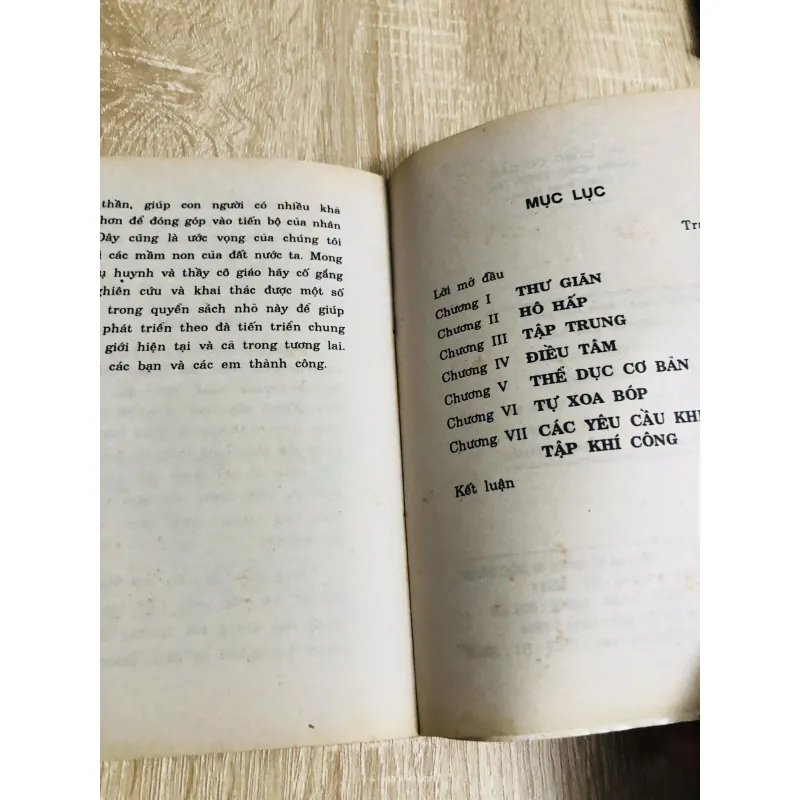 thần, giúp con người có nhiều khả
hơn để đóng góp vào tiến bộ của nhân
Đây cũng là ước vọng của chúng tôi
các mầm non của đất nước ta. Mong
huynh và thầy cô giáo hãy cố gắng
nghiên cứu và khai thác được một số
trong quyển sách nhỏ này để giúp
phát triển theo đà tiến triển chung
giới hiện tại và cả trong tương lai.
các bạn và các em thành công.
MỤC LỤC
Lời mở đầu
Chương I THƯ GIÃN
Chương II HÔ HẤP
Chương III TẬP TRUNG
Chương IV ĐIỀU TÂM
Chương V THỂ DỤC CƠ BẢN
Chương VI TỰ XOA BÓP
Chương VII CÁC YÊU CẦU KHI
TẬP KHÍ CÔNG
Kết luận